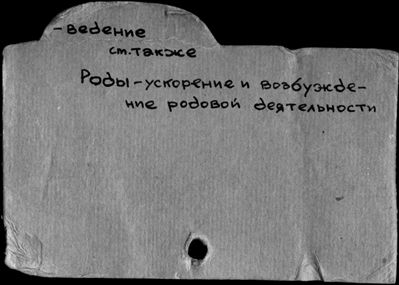 -ведение
см.также
Роды-ускорение и возбужде-
ние родовой деятельности